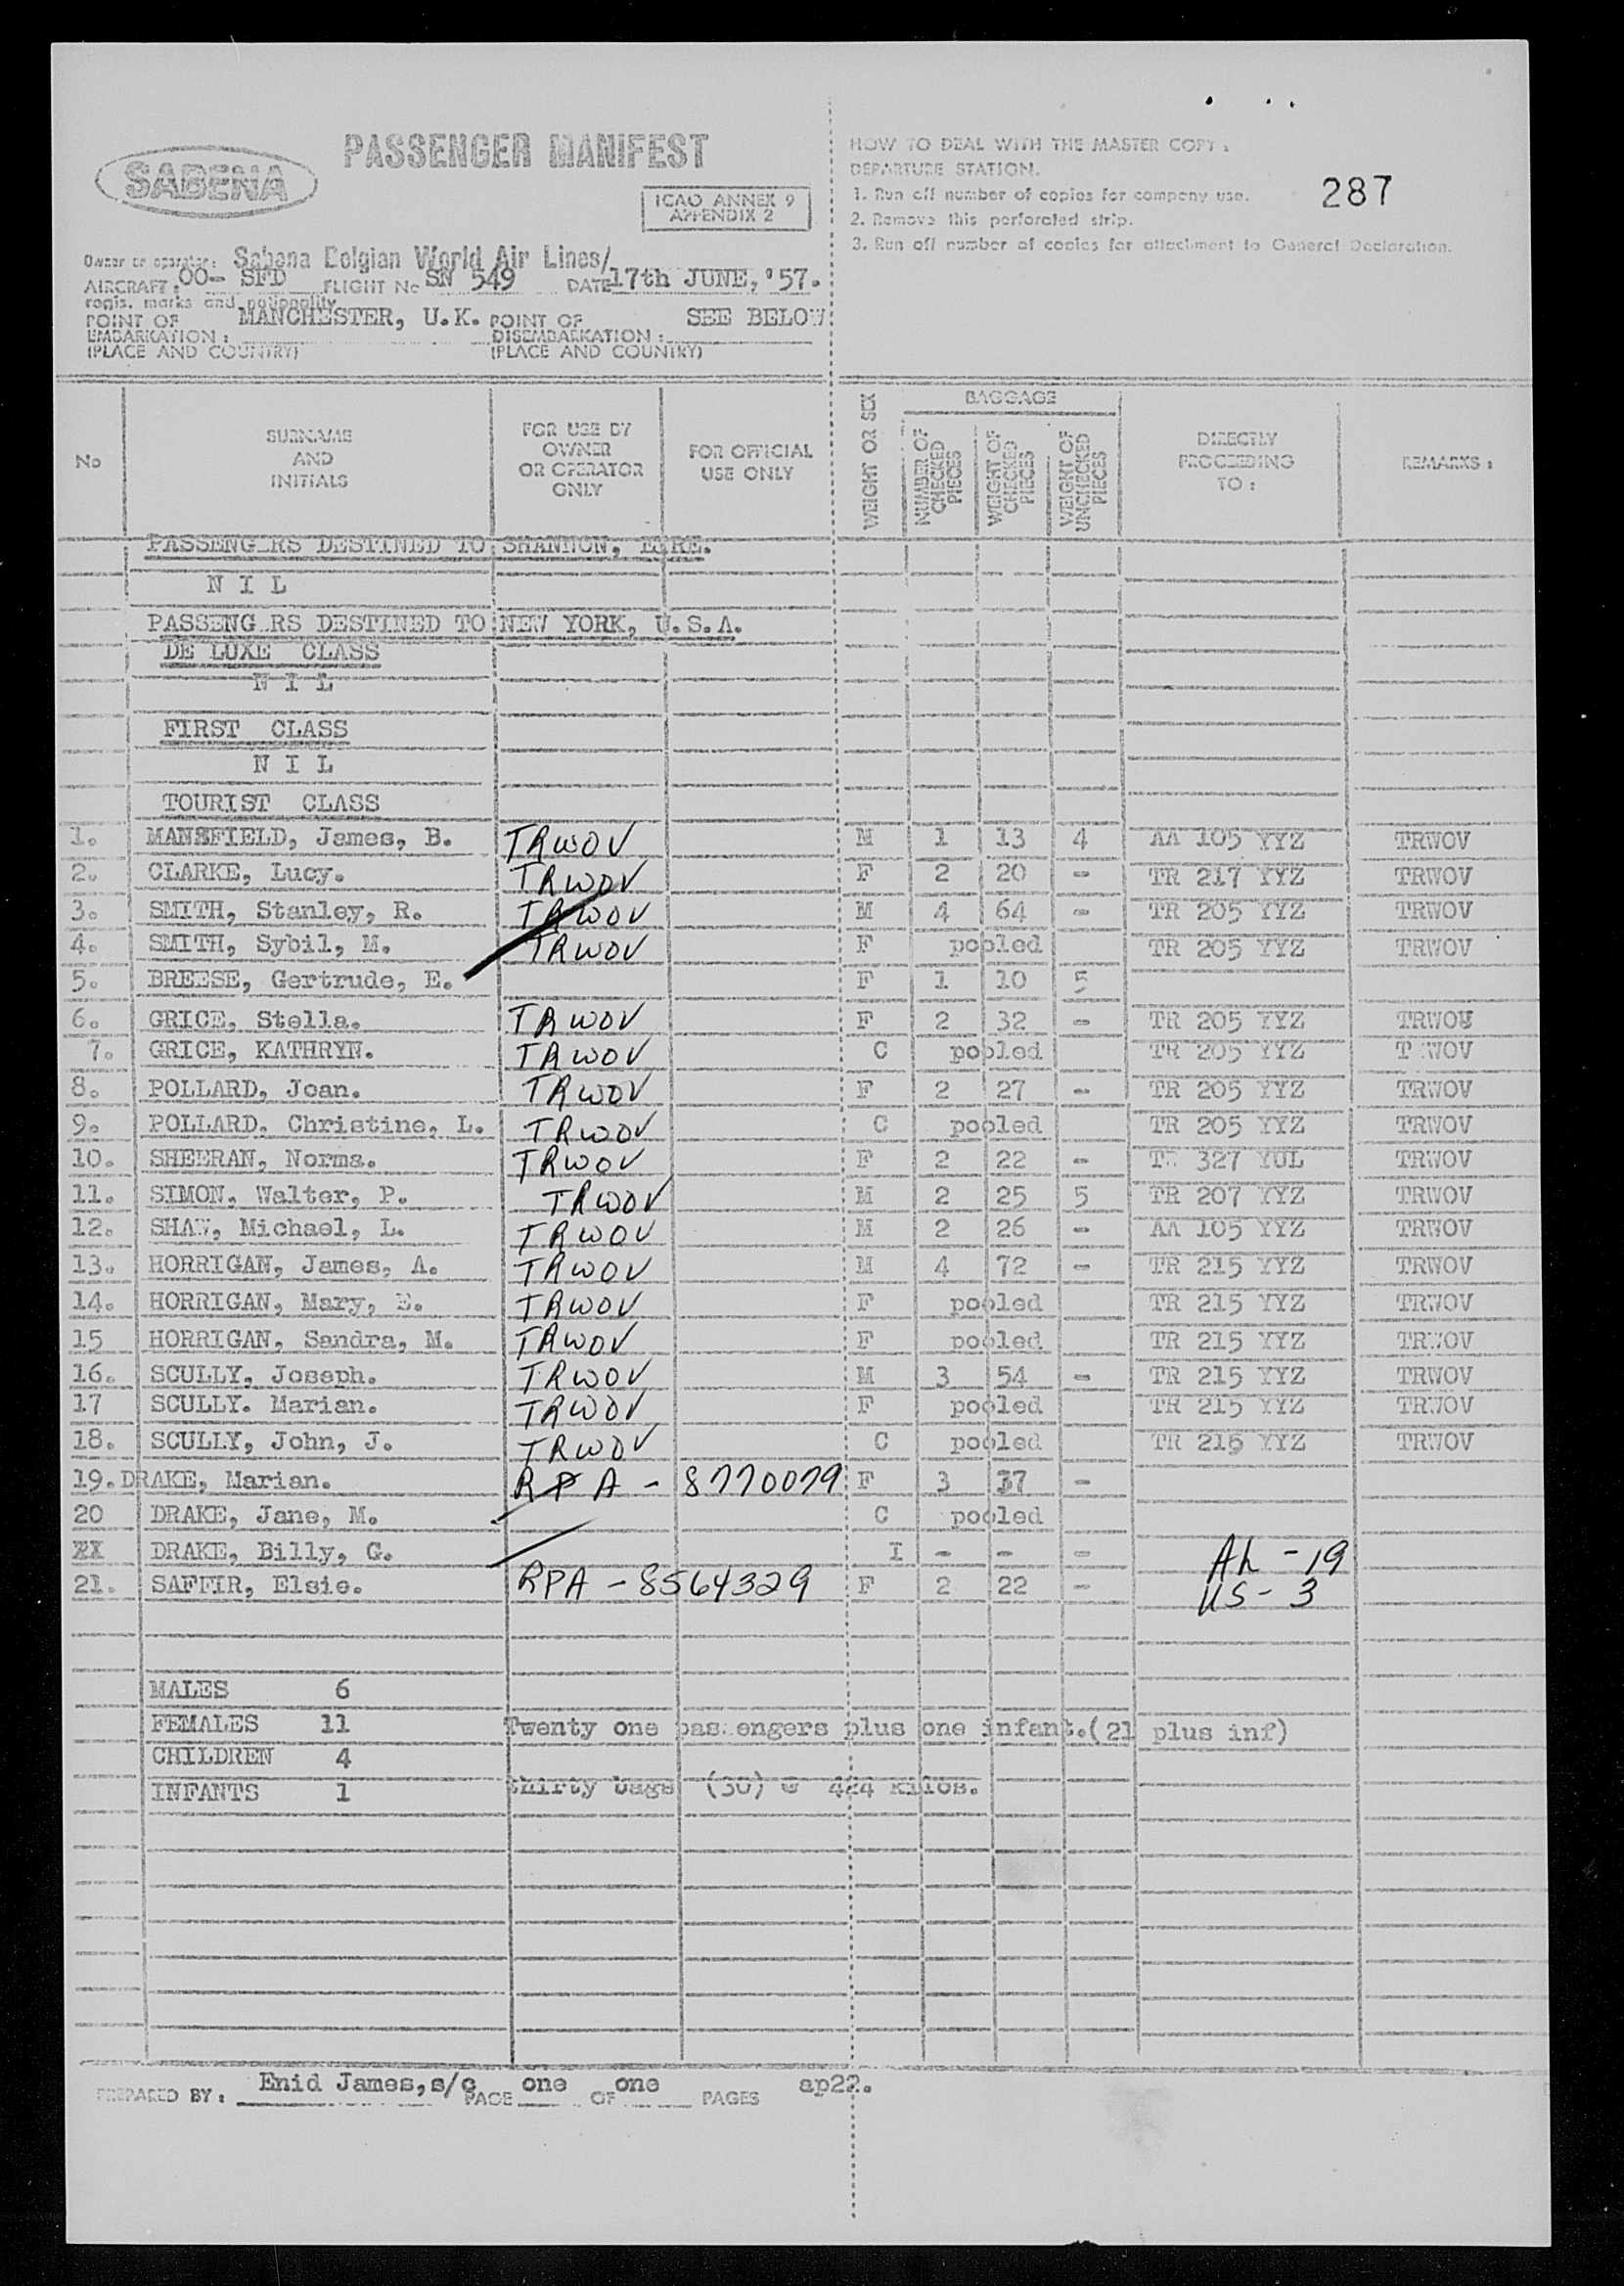 SABENA
PASSENGER MANIFEST
ICAO ANNEX 9
APPENDIX 2
HOW TO DEAL WITH THE MASTER COPY :
DEPARTURE STATION.
1. Run off number of copies for company use.
2. Remove this perforated strip.
3. Run off number of copies for attachment to General Declaration.
287
Owner or operator: Sabena Belgian World Air Lines/
AIRCRAFT: OO- SFD FLIGHT No SN 549 DATE 17th JUNE, '57.
regis. marks and nationality
POINT OF EMBARKATION : MANCHESTER, U.K. POINT OF DISEMBARKATION : SEE BELOW
(PLACE AND COUNTRY) (PLACE AND COUNTRY)
No
SURNAME AND INITIALS
FOR USE BY OWNER OR OPERATOR ONLY
FOR OFFICIAL USE ONLY
WEIGHT OR SEX
BAGGAGE
NUMBER OF CHECKED PIECES
WEIGHT OF CHECKED PIECES
WEIGHT OF UNCHECKED PIECES
DIRECTLY PROCEEDING TO :
REMARKS :
PASSENG RS DESTINED TO SHANNON, EIRE.
N I L
PASSENG RS DESTINED TO NEW YORK, U.S.A.
DE LUXE CLASS
N I L
FIRST CLASS
N I L
TOURIST CLASS
1. MANSFIELD, James, B. TRWOV M 1 13 4 AA 105 YYZ TRWOV
2. CLARKE, Lucy. TRWOV F 2 20 - TR 217 YYZ TRWOV
3. SMITH, Stanley, R. TRWOV M 4 64 - TR 205 YYZ TRWOV
4. SMITH, Sybil, M. TRWOV F pooled TR 205 YYZ TRWOV
5. BREESE, Gertrude, E. F 1 10 5
6. GRICE, Stella. TRWOV F 2 32 - TR 205 YYZ TRWOV
7. GRICE, KATHRYN. TRWOV C pooled TR 205 YYZ T WOV
8. POLLARD, Joan. TRWOV F 2 27 - TR 205 YYZ TRWOV
9. POLLARD. Christine, L. TRWOV C pooled TR 205 YYZ TRWOV
10. SHEERAN, Norma. TRWOV F 2 22 - TR 327 YUL TRWOV
11. SIMON, Walter, P. TRWOV M 2 25 5 TR 207 YYZ TRWOV
12. SHAW, Michael, L. TRWOV M 2 26 - AA 105 YYZ TRWOV
13. HORRIGAN, James, A. TRWOV M 4 72 - TR 215 YYZ TRWOV
14. HORRIGAN, Mary, E. TRWOV F pooled TR 215 YYZ TRWOV
15 HORRIGAN, Sandra, M. TRWOV F pooled TR 215 YYZ TRWOV
16. SCULLY, Joseph. TRWOV M 3 54 - TR 215 YYZ TRWOV
17 SCULLY. Marian. TRWOV F pooled TR 215 YYZ TRWOV
18. SCULLY, John, J. TRWOV C pooled TR 215 YYZ TRWOV
19. DRAKE, Marian. RPA - 8770079 F 3 37 -
20 DRAKE, Jane, M. C pooled
XX DRAKE, Billy, G. I - - - Ah - 19
21. SAFFIR, Elsie. RPA - 8564329 F 2 22 - US - 3
MALES 6
FEMALES 11 Twenty one pas engers plus one infant.(21 plus inf)
CHILDREN 4
INFANTS 1 thirty bags (30) @ 424 kilos.
PREPARED BY : Enid James,s/c PAGE one OF one PAGES ap22.